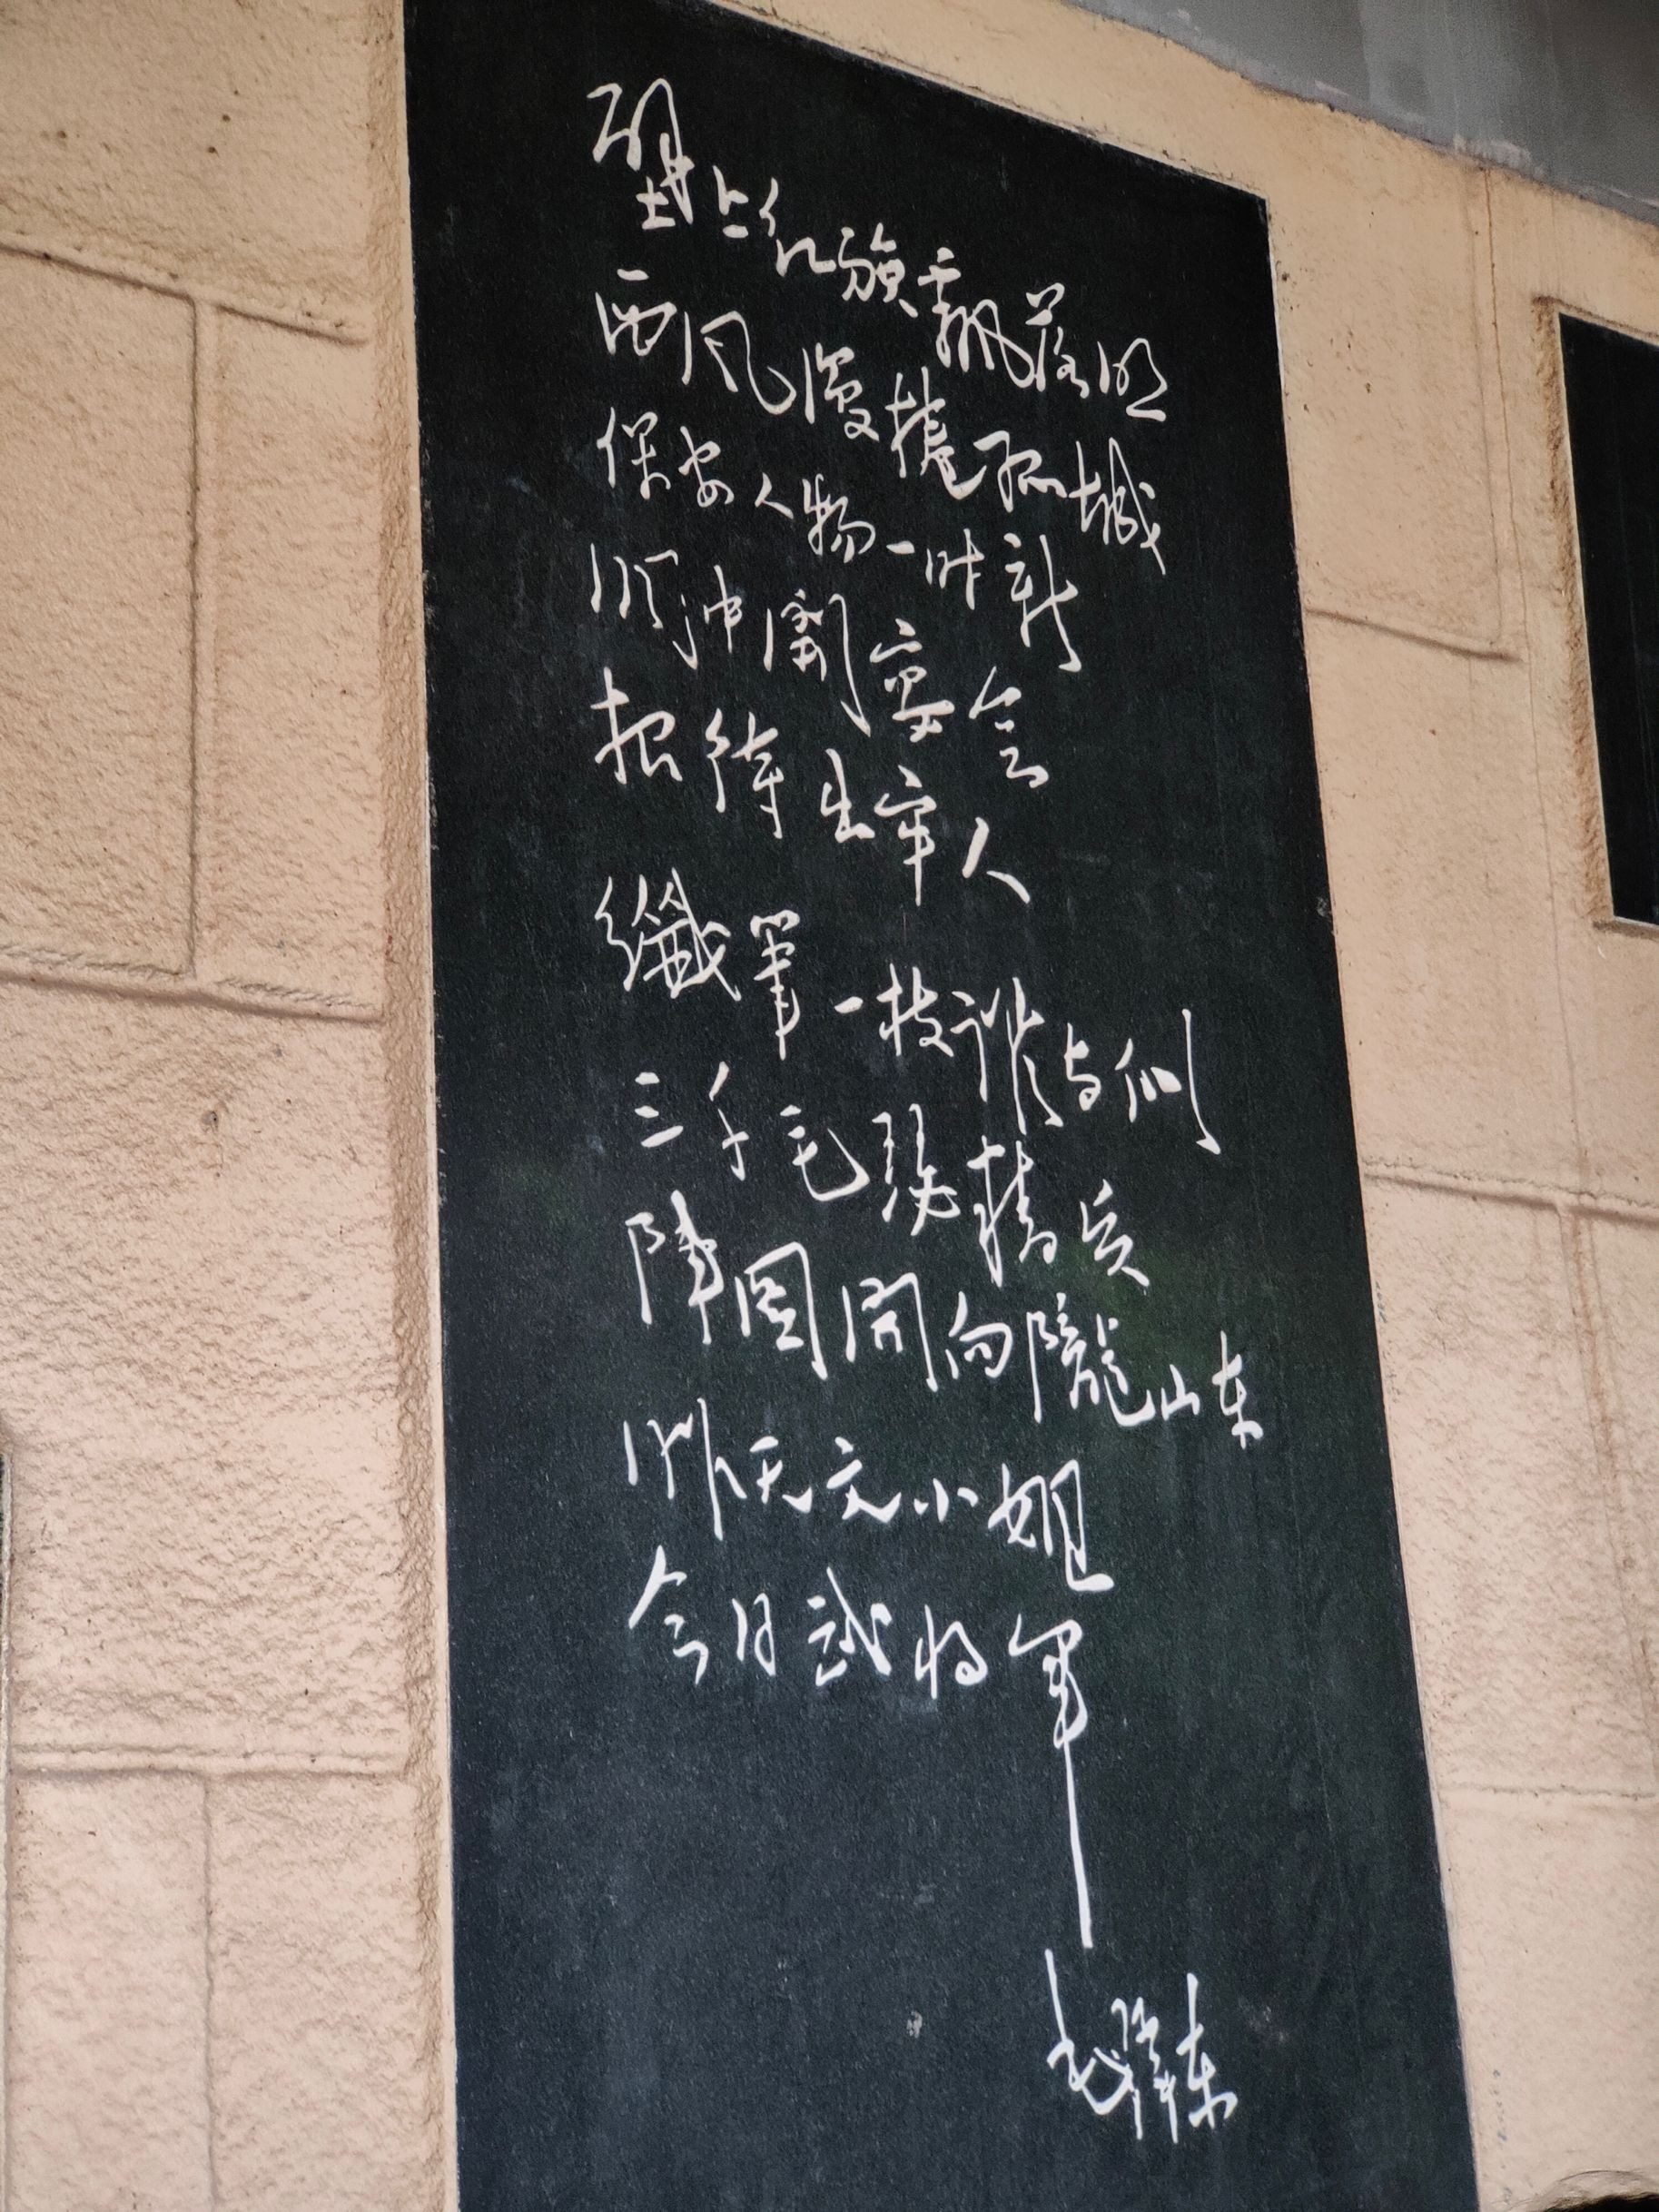 壁上红旗飘落照
西风漫捲孤城
保安人物一时新
洞中開宴会
招待出牢人
纖筆一枝誰与似
三千毛瑟精兵
陣圖開向隴山东
昨天文小姐
今日武将軍
毛澤东